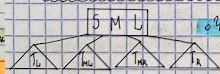 5 M L
T_L T_ML T_MR T_R